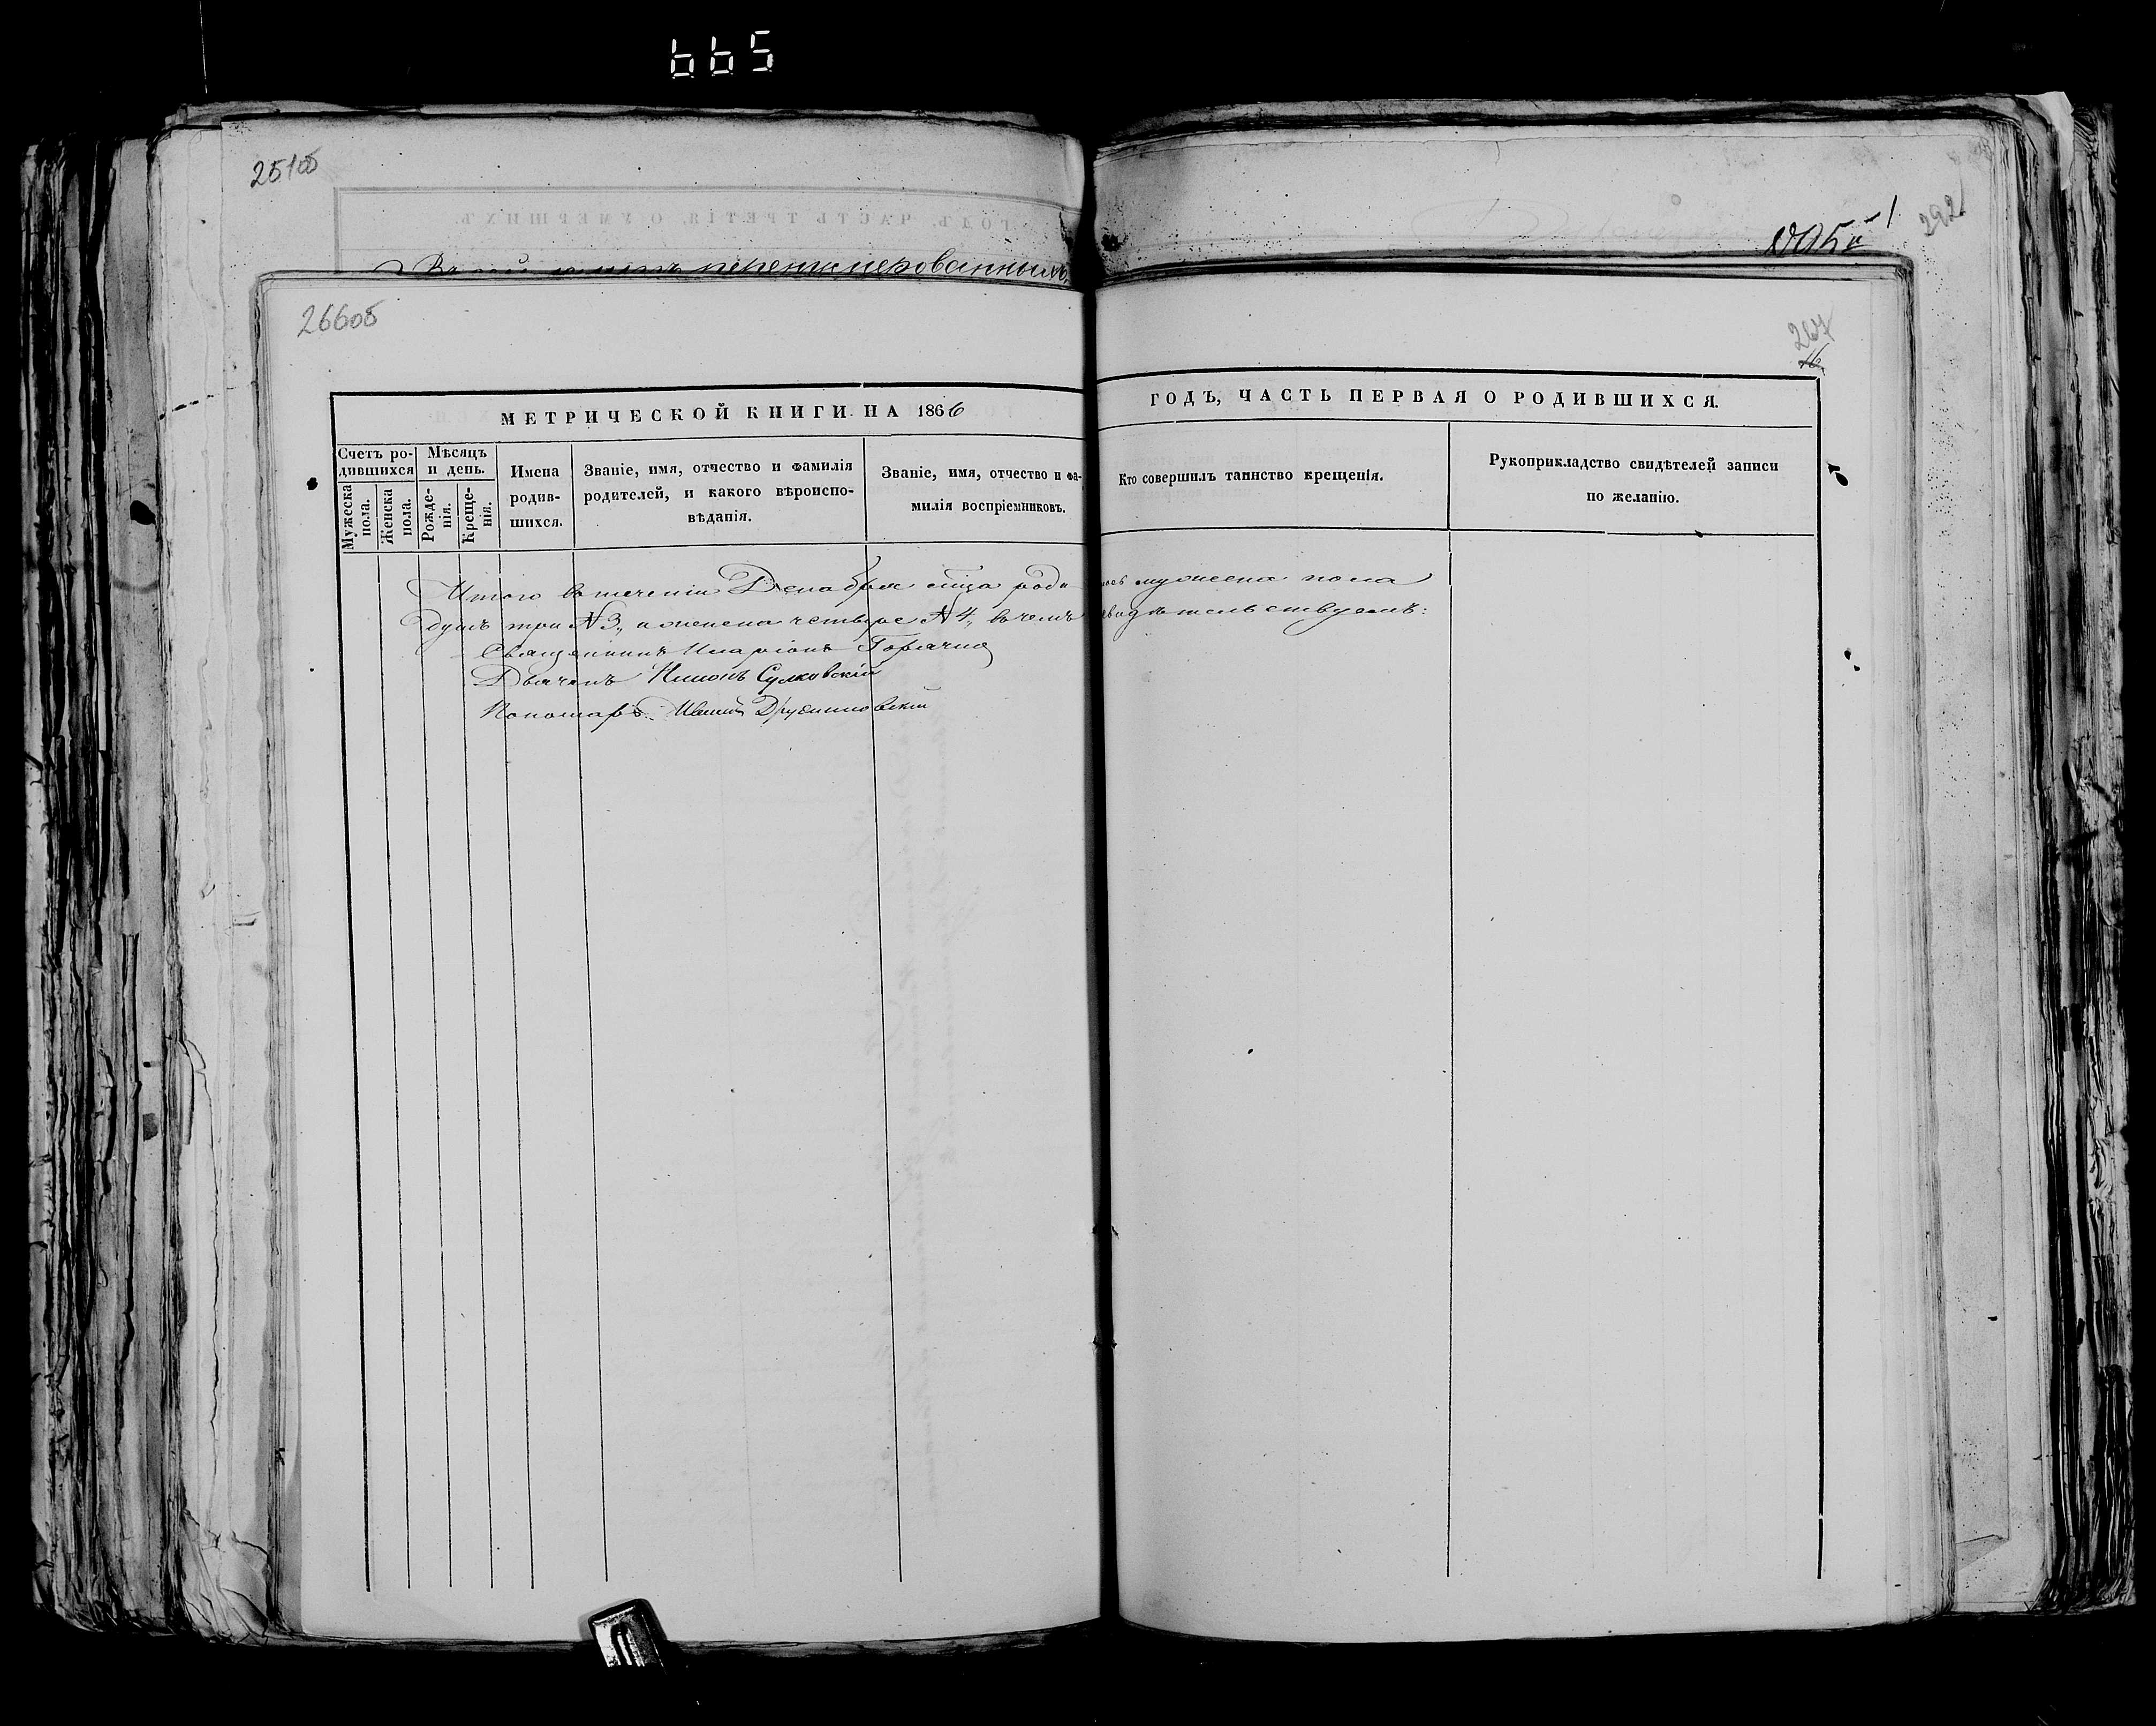 665
251об
292
перенумерованныхъ
266об
267
16
МЕТРИЧЕСКОЙ КНИГИ НА 1866
ГОДЪ, ЧАСТЬ ПЕРВАЯ О РОДИВШИХСЯ.
Счетъ ро-
дившихся
Мужеска
пола.
Женска
пола.
Мѣсяцъ
и день.
Рожде-
нія.
Креще-
нія.
Имена
родив-
шихся.
Званіе, имя, отчество и фамилія
родителей, и какого вѣроиспо-
вѣданія.
Званіе, имя, отчество и фа-
милія воспріемниковъ.
Кто совершилъ таинство крещенія.
Рукоприкладство свидѣтелей записи
по желанію.
Итого въ теченіи Декабря мца роди лось мужеска пола
душъ три №3, а женска четыре №4, въ чемъ свидѣтельствуемъ:
Священникъ Иларіонъ
Дьячекъ Сулковскій
Пономарь